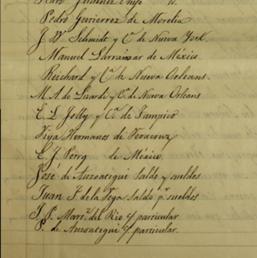 Pedro Gutierrez de Morelia
J. W. Schmidt y Ca. de Nueva York.
Manuel Larrainzar de México
Reichard y Ca. de Nueva Orleans
M. A. de Lizardi y Ca. de Nueva Orleans
E. L. Jolly y Ca. de Tampico
Viya Hermanos de Veracruz
E. J. Perry de México
José de Ansoategui saldo y sueldos
Juan J. de la Vega saldo pr. sueldos
J. P. Marz. del Rio y particular
P. de Ansoategui y particular.